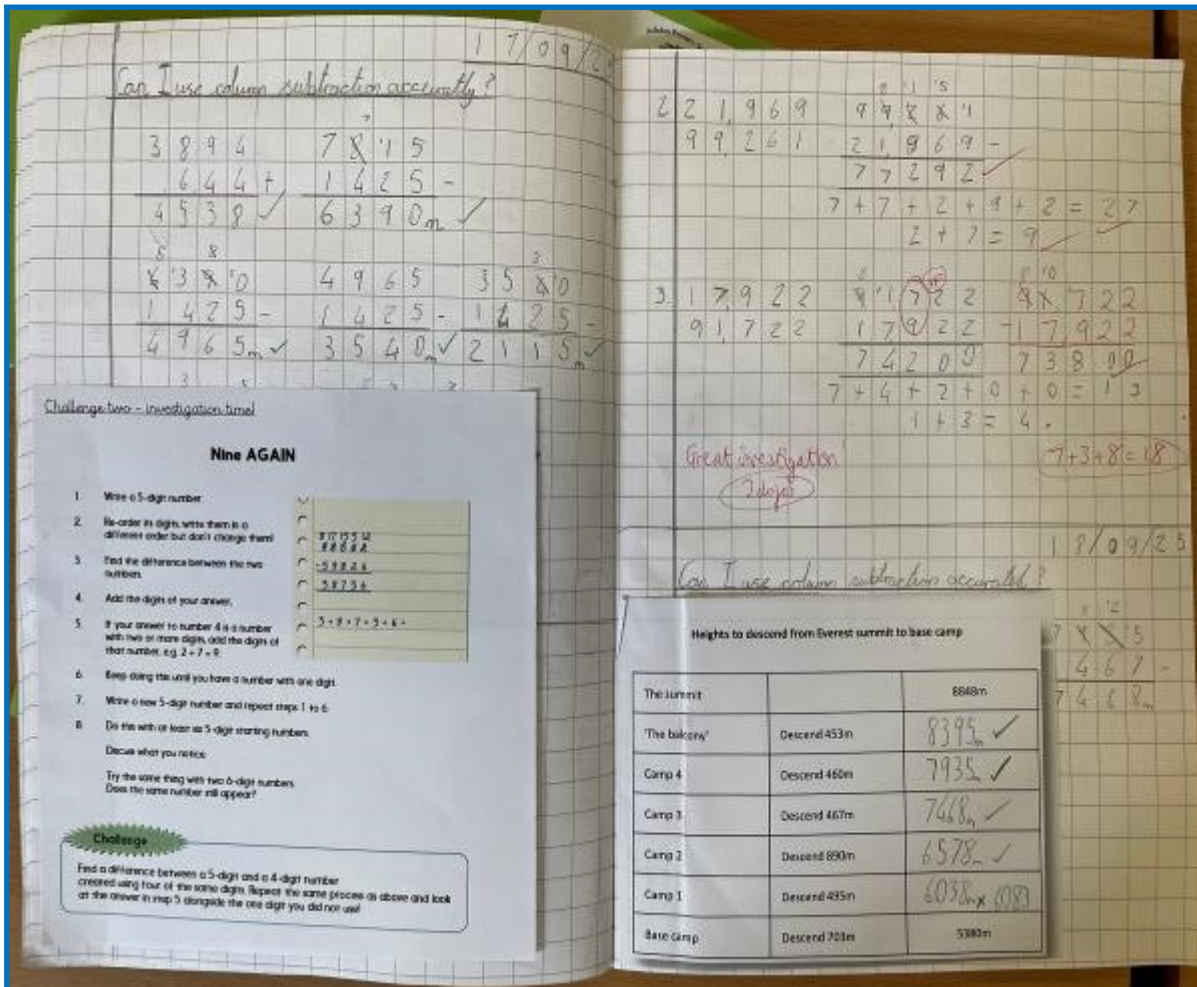 17/09/2
Can I use column subtraction accuratly?
3894
644+
4538 ✓
7
7 8 '1 5
1425-
6390m ✓
5 8
6 '3 9 '0
1425-
4965m ✓
4965
1425-
3540m ✓
3
3 5 4 '0
1425-
2115m ✓
Challenge two - investigation time!
Nine AGAIN
1. Write a 5-digit number.
2. Re-order its digits, write them in a
different order but don't change them!
3. Find the difference between the two
numbers.
4. Add the digits of your answer.
5. If your answer to number 4 is a number
with two or more digits, add the digits of
that number. e.g. 2 + 7 = 9
6. Keep doing this until you have a number with one digit.
7. Write a new 5-digit number and repeat steps 1 to 6.
8. Do this with at least six 5-digit starting numbers.
Discuss what you notice.
Try the same thing with two 6-digit numbers.
Does the same number still appear?
-59826
38736
Challenge
Find a difference between a 5-digit and a 4-digit number
created using four of the same digits. Repeat the same process as above and look
at the answer in step 5 alongside the one digit you did not use!
2 21,969
99,261
21,969-
77292 ✓
7+7+2+9+2=27
2+7=9 ✓
3. 17,922
91,722
17922
74200
17922
73800
7+4+2+0+0=13
1+3=4.
Great investigation!
2 dojos
7+3+8=18
18/09/25
Can I use column subtraction accuratly?
467-
Heights to descend from Everest summit to base camp
The summit 8848m
'The balcony' Descend 453m 8395m ✓
Camp 4 Descend 460m 7935m ✓
Camp 3 Descend 467m 7468m ✓
Camp 2 Descend 890m 6578m ✓
Camp 1 Descend 495m 6038m x 6083
Base camp Descend 703m 5380m